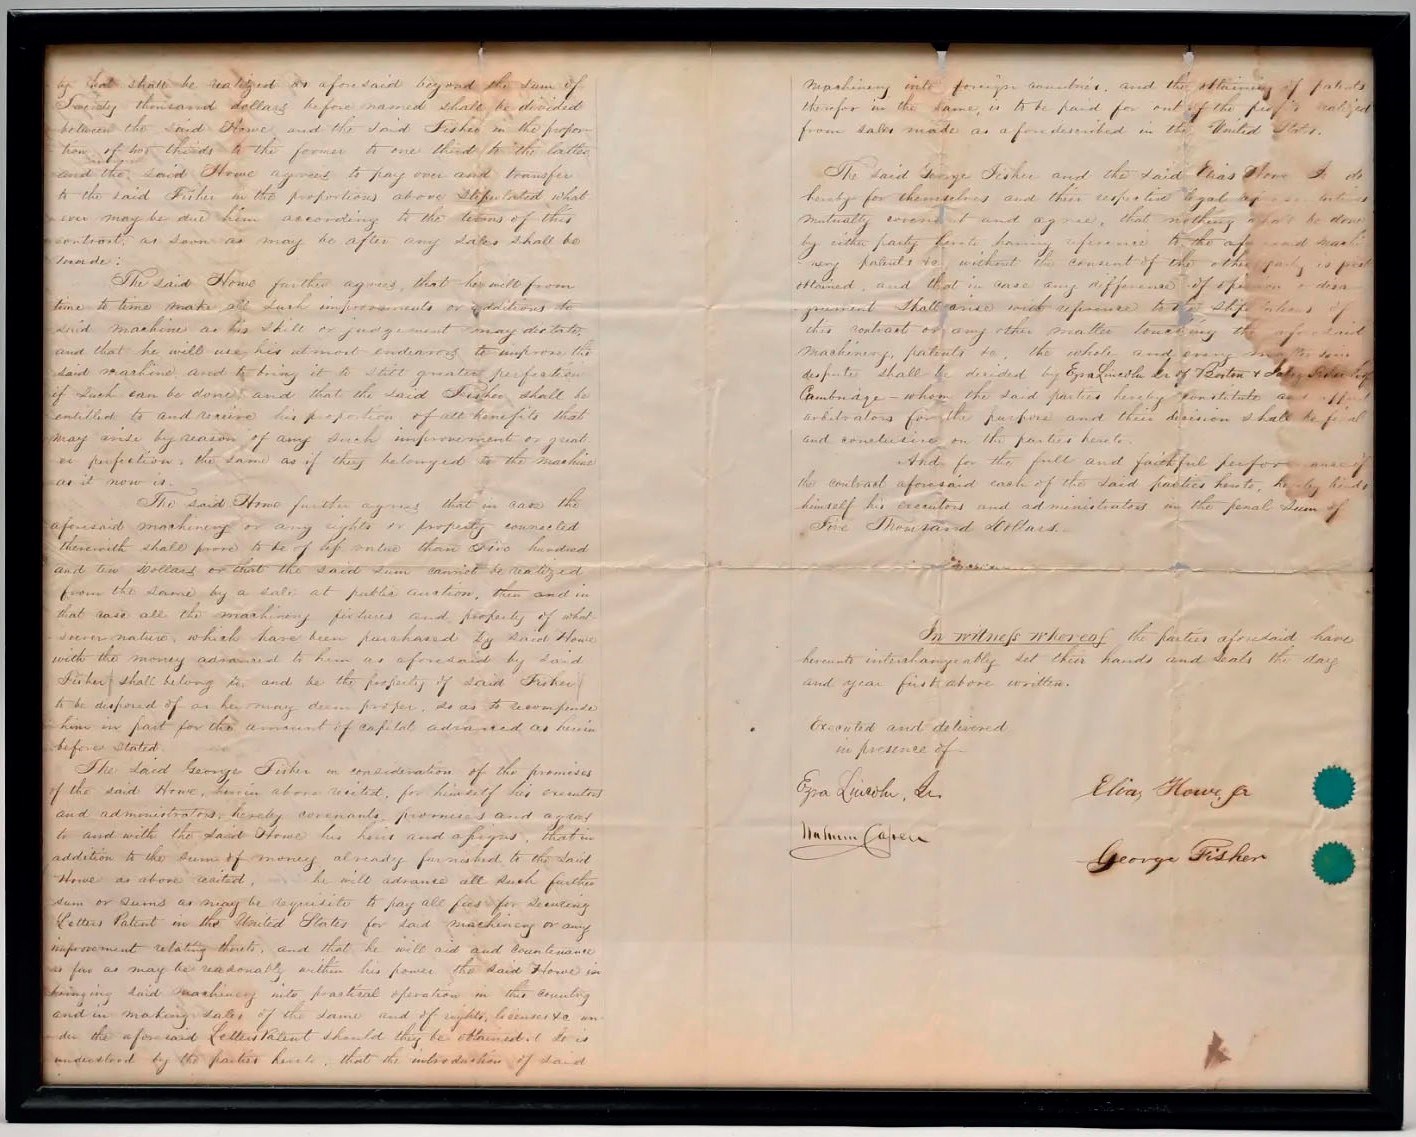 that shall be realized as aforesaid beyond the sum of
Twenty thousand dollars before named shall be divided
between the said Howe and the said Fisher in the propor-
tion of two thirds to the former to one third to the latter
and the said Howe agrees to pay over and transfer
to the said Fisher in the proportions above stipulated what
ever may be due him according to the terms of this
contract, as soon as may be after any sales shall be
made:
The said Howe further agrees, that he will from
time to time make all such improvements or additions to
said machine as his skill or judgement may dictate,
and that he will use his utmost endeavors to improve the
said machine and to bring it to still greater perfection
if such can be done, and that the said Fisher shall be
entitled to and receive his proportion of all benefits that
may arise by reason of any such improvement or great-
er perfection, the same as if they belonged to the machine
as it now is.
The said Howe further agrees that in case the
aforesaid machinery or any rights or property connected
therewith shall prove to be of less value than Five hundred
and two Dollars or that the said sum cannot be realized
from the same by a sale at public auction, then and in
that case all the machinery fixtures and property of what
soever nature, which have been purchased by said Howe
with the money advanced to him as aforesaid by said
Fisher shall belong to, and be the property of said Fisher
to be disposed of as he may deem proper, so as to recompense
him in part for the amount of capital advanced as herein
before stated.
The said George Fisher in consideration of the promises
of the said Howe, herein above recited, for himself his executors
and administrators, hereby covenants, promises and agrees
to and with the said Howe his heirs and assigns, that in
addition to the sum of money already furnished to the said
Howe as above recited, he will advance all such further
sum or sums as may be requisite to pay all fees for securing
Letters Patent in the United States for said machinery or any
improvement relating thereto, and that he will aid and countenance
as far as may be reasonably within his power the said Howe in
bringing said machinery into practical operation in this country
and in making sales of the same and of rights, licenses &c un-
der the aforesaid Letters Patent should they be obtained. It is
understood by the parties hereto, that the introduction of said
machinery into foreign countries, and the obtaining of patents
therefor in the same, is to be paid for out of the profits realized
from sales made as aforedescribed in the United States.
The said George Fisher and the said Elias Howe Jr do
hereby for themselves and their respective legal
mutually covenant and agree, that nothing shall be done
by either party hereto having reference to the aforesaid machi
nery patents &c, without the consent of the other party is first
obtained, and that in case any difference of opinion or disa-
greement shall arise with reference to the stipulations of
this contract or any other matter touching the aforesaid
machinery, patents &c, the whole and every matter in
dispute shall be decided by Ezra Lincoln Jr of Boston &
Cambridge – whom the said parties hereby constitute and appoint
arbitrators for the purpose and their decision shall be final
and conclusive on the parties hereto.
And for the full and faithful performance of
the contract aforesaid each of the said parties hereto, hereby binds
himself his executors and administrators in the penal sum of
Five Thousand Dollars.
In witness whereof the parties aforesaid have
hereunto interchangeably set their hands and seals the day
and year first above written.
Executed and delivered
in presence of
Ezra Lincoln, Jr.
Nahum Capen
Elias Howe, Jr
George Fisher